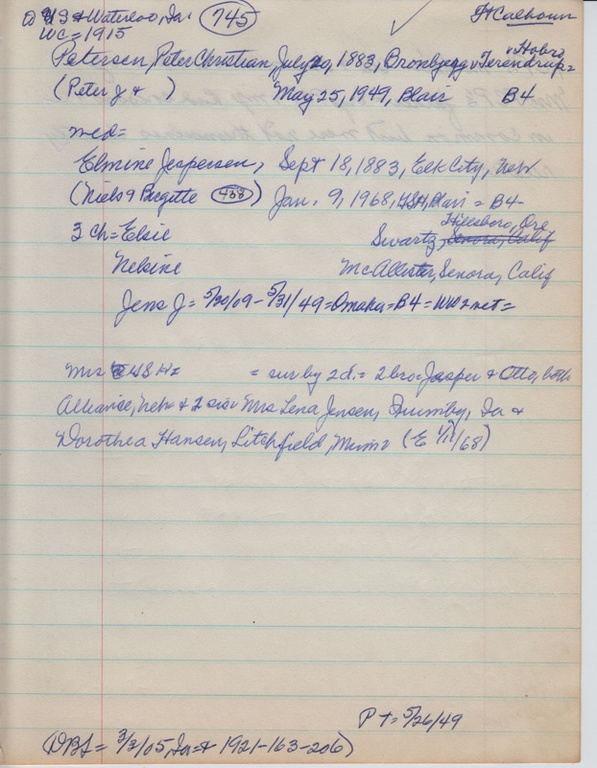 US & Waterloo, Ia. 745 Ft Calhoun
WC = 1915
Petersen, Peter Christian, July 20, 1883, Bronbjerg v Terendrup v Hobro =
(Peter J & ) May 25, 1949, Blair B4
med =
Elmine Jespersen, Sept 18, 1883, Elk City, Nebr
(Niels & Birgitte 438) Jan. 9, 1968, Blair = B4
Hillsboro, Ore
3 Ch = Elsie Swartz, Senora, Calif
Nelsine McAllister, Senora, Calif
Jens J = 5/30/09 - 5/31/49 = Omaha = B4 = WW2 vet =
Mrs = sur by 2 d. = 2 bro = Jasper & Otto, both
Alliance, Nebr & 2 sis = Mrs Lena Jensen, Brumby, Ia &
Dorothea Hansen, Litchfield, Minn = (E 1/11/68)
P T = 5/26/49
(DBL = 3/3/05, Ia = & 1921-163-206)